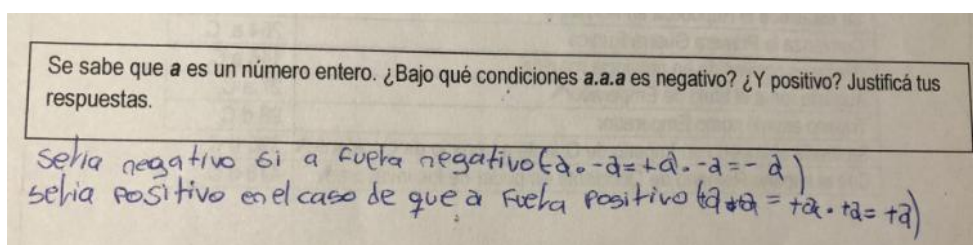 Se sabe que a es un número entero. ¿Bajo qué condiciones a.a.a es negativo? ¿Y positivo? Justificá tus
respuestas.
seria negativo si a fuera negativo (-a. -a = +a. -a = - a)
seria positivo en el caso de que a fuera positivo (+a +a = +a . +a = +a)